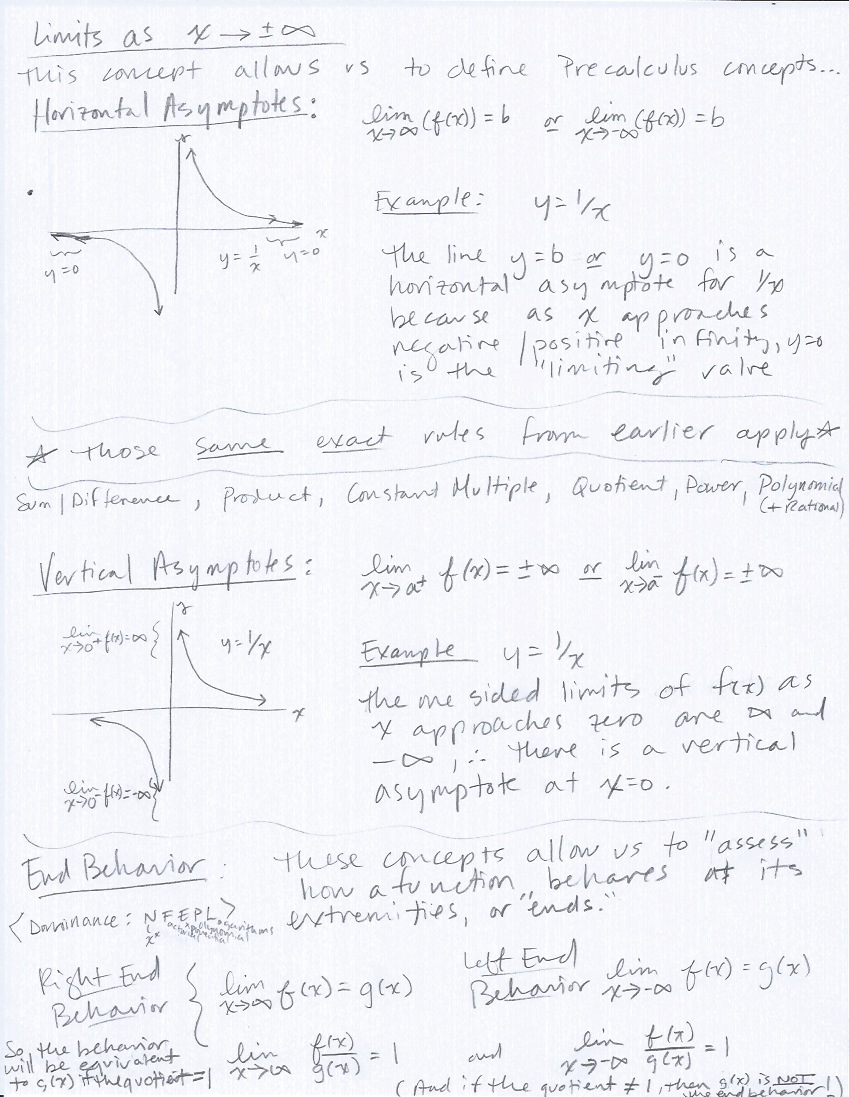 Limits as x → ± ∞
This concept allows us to define Precalculus concepts...
Horizontal Asymptotes:
lim x→∞ (f(x)) = b or lim x→-∞ (f(x)) = b
Example: y = 1/x
x
y = 1/x
y=0
y=0
The line y=b or y=0 is a
horizontal asymptote for 1/x
because as x approaches
negative/positive infinity, y=0
is the "limiting" value
☆ Those same exact rules from earlier apply ☆
Sum/Difference, Product, Constant Multiple, Quotient, Power, Polynomial
(+ Rational)
Vertical Asymptotes:
lim x→a⁺ f(x) = ± ∞ or lim x→a⁻ f(x) = ± ∞
lim x→0⁺ f(x) = ∞
y = 1/x
x
lim x→0⁻ f(x) = -∞
Example y = 1/x
The one sided limits of f(x) as
x approaches zero are ∞ and
-∞, ∴ there is a vertical
asymptote at x=0.
End Behavior: These concepts allow us to "assess"
how a function behaves at its
extremities, or "ends."
<Dominance: NFEPL>
x^x actorial xponential olynomial ogarithms
Right End
Behavior
lim x→∞ f(x) = g(x)
Left End
Behavior
lim x→-∞ f(x) = g(x)
So the behavior
will be equivalent
to g(x) if the quotient = 1
lim x→∞ f(x)/g(x) = 1 and lim x→-∞ f(x)/g(x) = 1
(And if the quotient ≠ 1, then g(x) is NOT
the end behavior!)